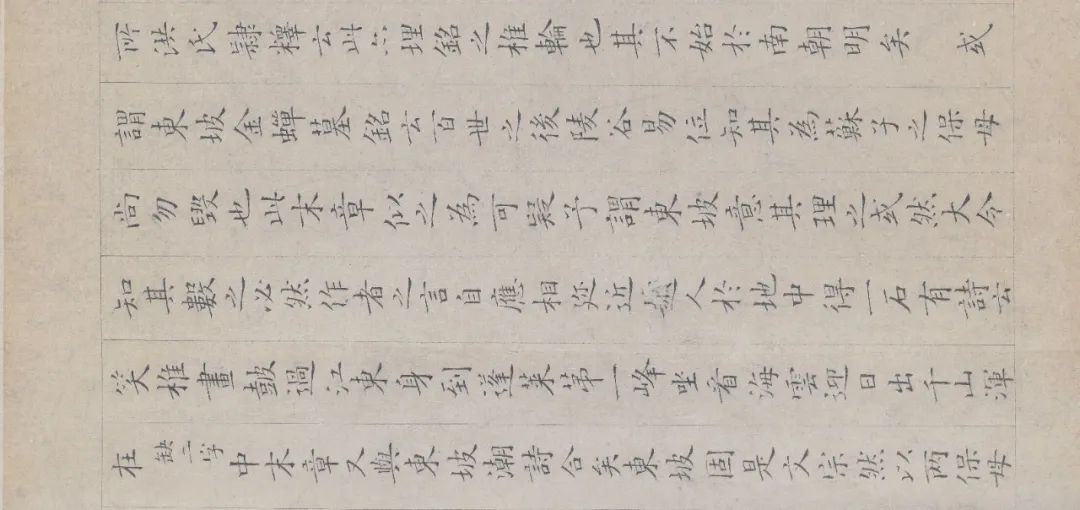 所洪氏隸釋云此亦埋銘之椎輪也其不始於南朝明矣 或
謂東坡金蟬墓銘云百世之後陵谷易位知其為蘇子之保母
尚勿毀也此末章似之為可疑予謂東坡意其理之或然大令
知其數之必然作者之言自應相近越人於地中得一石有詩云
笑椎畫鼓過江東身到蓬萊第一峰坐看海雲迎日出千山渾
在缺二字中末章又與東坡潮詩合矣東坡固是文宗然以兩保母